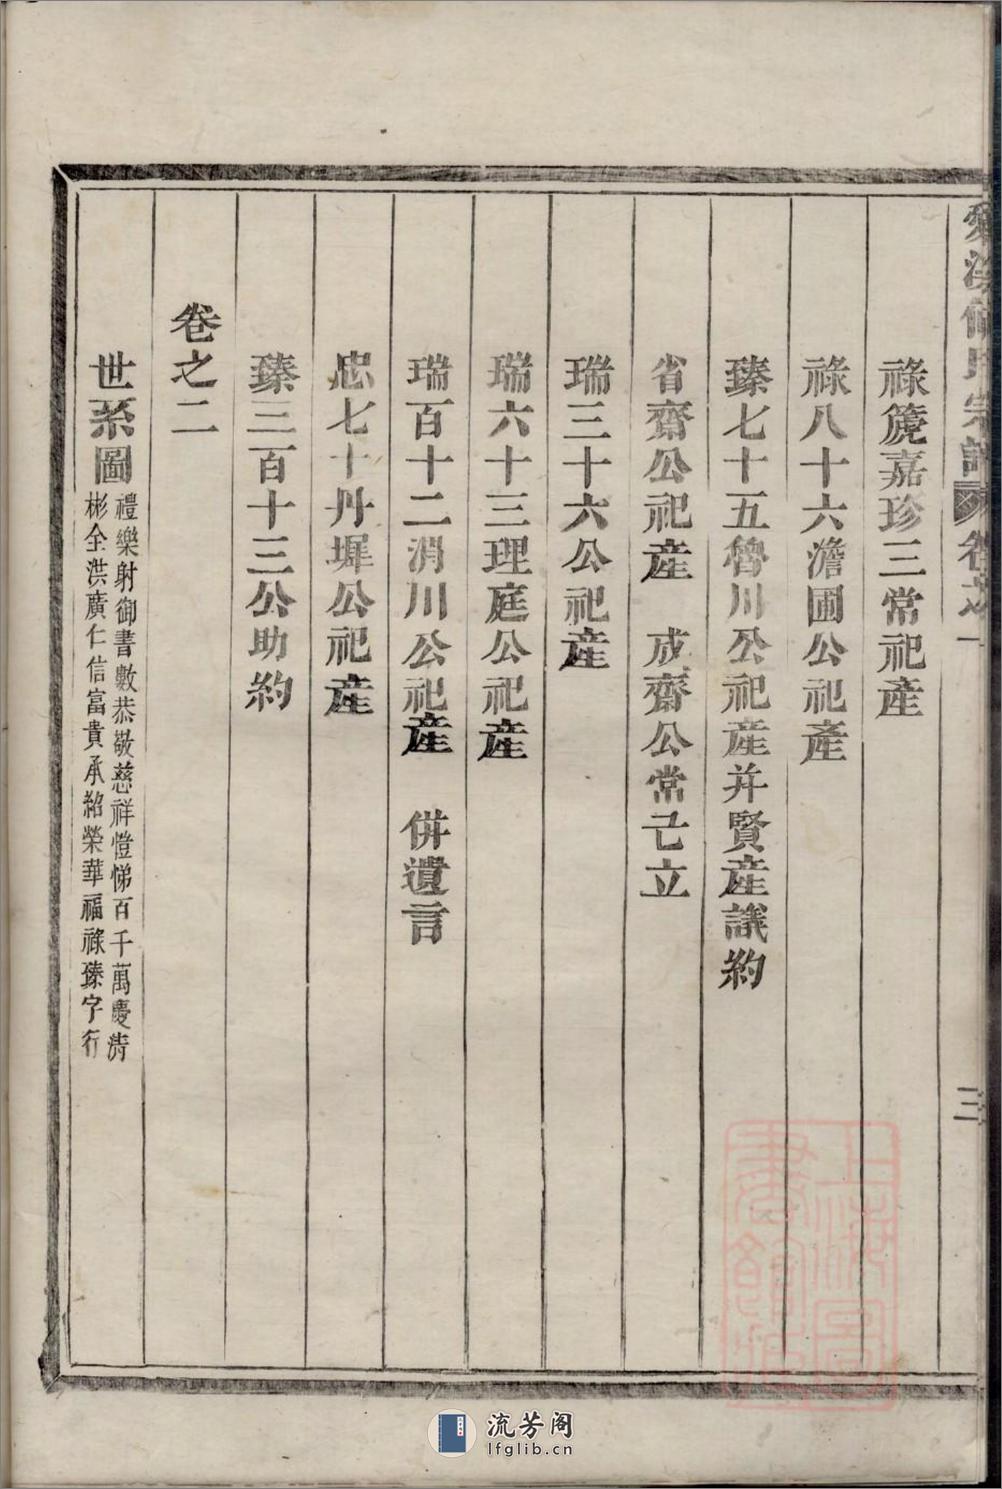 宗譜 卷之一
三
祿箎嘉珍三常祀產
祿八十六澹圃公祀產
臻七十五魯川公祀產并賢產議約
省齋公祀產 成齋公常已立
瑞三十六公祀產
瑞六十三理庭公祀產
瑞百十二涓川公祀產 併遺言
忠七十丹墀公祀產
臻三百十三公助約
卷之二
世系圖
禮樂射御書數恭敬慈祥愷悌百千萬慶清
彬全洪廣仁信富貴承紹榮華福祿臻字行
上海圖書館藏
流芳阁
lfglib.cn